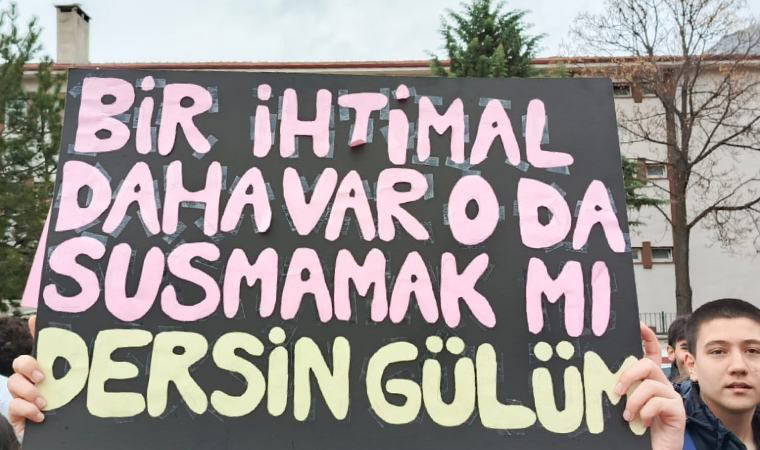 BİR İHTİMAL
DAHA VAR O DA
SUSMAMAK MI
DERSİN GÜLÜM